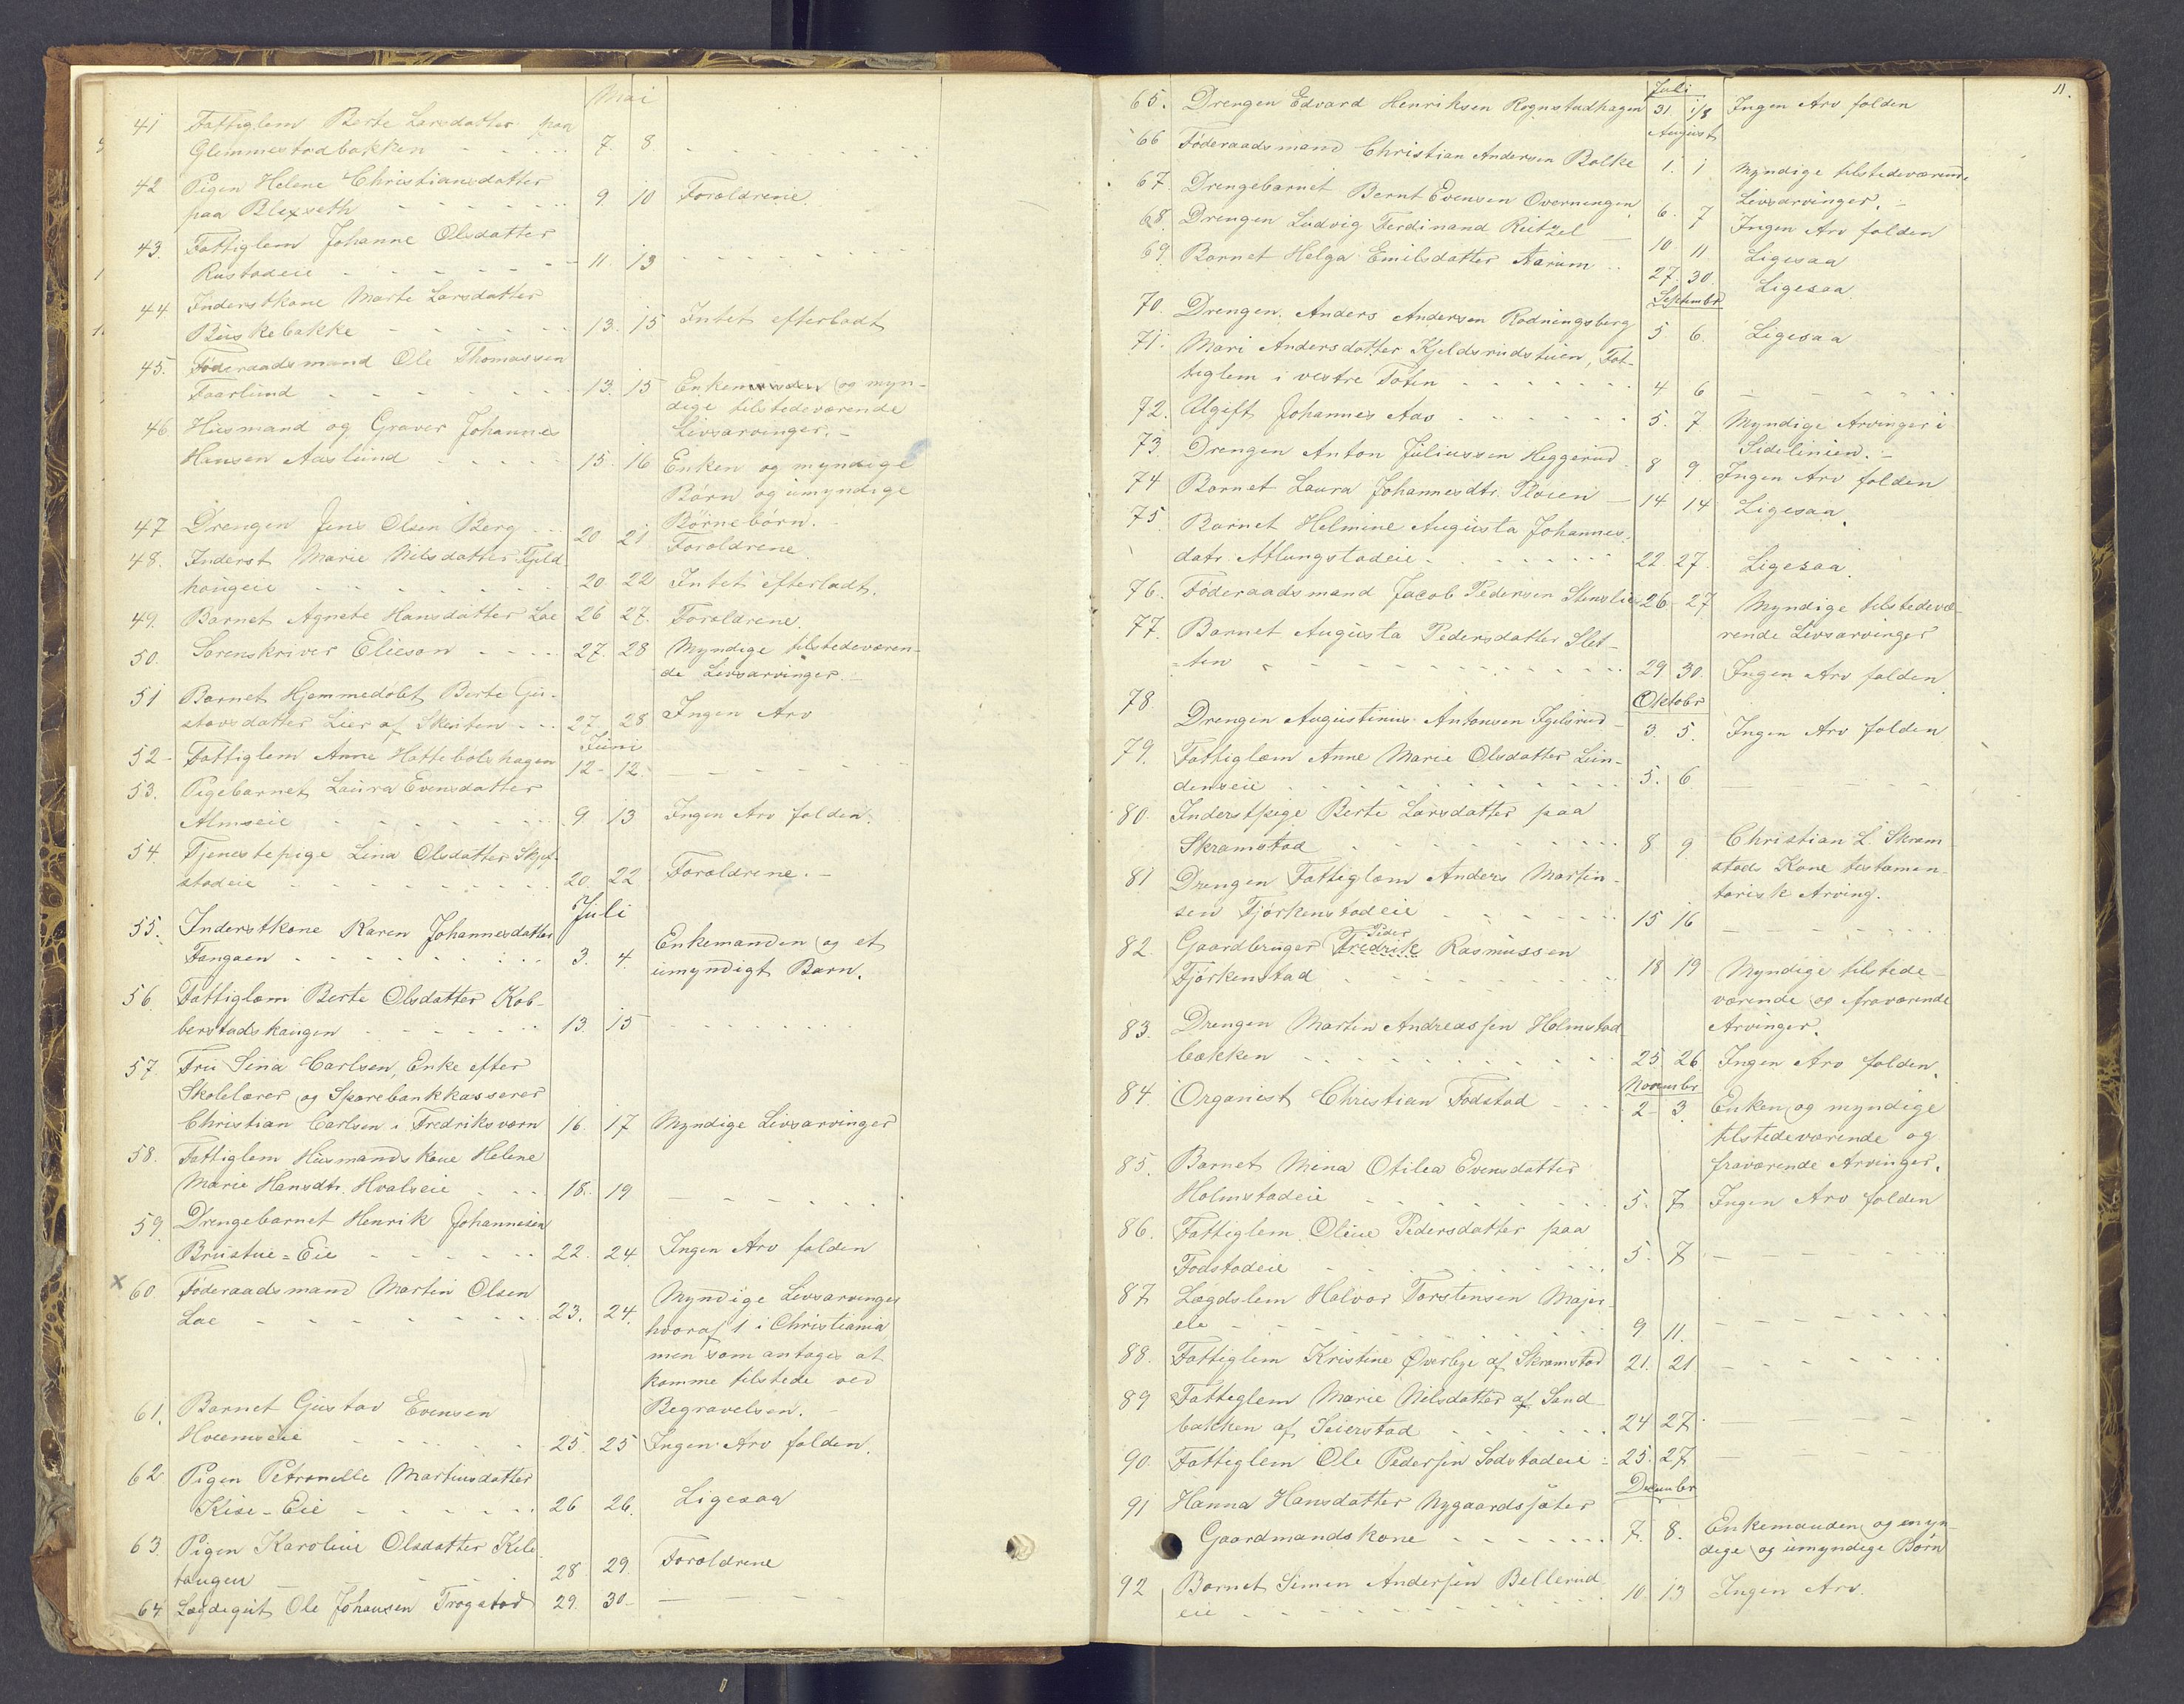 Mai
41 Fattiglem Berte Larsdatter paa
Glemmestadbakken - - - - 7. 8. - - - -
42 Pigen Helene Christiansdatter
paa Blixseth - - - - 9. 10 Forældrene.
43. Fattiglem Johanne Olsdatter
Rustadeie - - - - 11. 13 - - - -
44 Inderstkone Marte Larsdatter
Buskebakke - - - - 13. 15 Intet efterladt
45. Føderaadsmand Ole Thomassen
Faarlund - - - - 13. 15 Enken og myn-
dige tilstedeværende
Livsarvinger. -
46 Husmand og Graver Johannes
Hansen Aaslund - - - - 15. 16 Enken og myndige
Børn og umyndige
Børnebørn.
47 Drengen Jens Olsen Berg - - 20. 21 Forældrene
48. Inderst Marie Nilsdatter Fjeld-
haugen - - - - 20. 22 Intet efterladt.
49. Barnet Agnete Hansdatter Loe 26 27. Forældrene.
50. Sorenskriver Elieson - - - 27. 28 Myndige tilstedeværen-
de Livsarvinger. -
51 Barnet Hjemmedøbt Berte Gu-
stavsdatter Lier af Skreiten - - 27. 28 Ingen Arv
Juni
52 - Fattiglem Anne Hattebølshagen 12 - 12. - - - -
53. Pigebarnet Laura Evensdatter
Almseie - - - - 9. 13 Ingen Arv falden.
54. Tjenestepige Lina Olsdatter Skjel-
stadeie - - - - 20. 22 Forældrene. -
Juli
55. Inderstkone Karen Johannesdatter
Fangaen - - - - 3. 4. Enkemanden og et
umyndigt Barn.
56. Fattiglæm Berte Olsdatter Kob-
berstadshaugen - - - - 13. 15 - - - -
57. Fru Sina Carlsen, Enke efter
Skolelærer og Sparebankkasserer
Christian Carlsen i Fredriksværn 16. 17 Myndige Livsarvinger
58. Fattiglem Husmandskone Helene
Marie Hansdtr. Hvalseie - - - 18. 19 - - - -
59. Drengebarnet Henrik Johannesen
Brustue=Eie - - - - 22. 24. Ingen Arv falden
x 60. Føderaadsmand Martin Olsen
Loe - - - - 23. 24. Myndige Livsarvinger
hvoraf 1 i Christiania
men som antages at
komme tilstede ved
Begravelsen. -
61. Barnet Gustav Evensen
Hveemseie - - - - 25. 25 Ingen Arv falden.
62 Pigen Petronelle Martinsdatter
Kise-Eie - - - - 26 26. Ligesaa
63. Pigen Karoline Olsdatter Kile
taugen - - - - 28 29. Forældrene
64. Lægdegut Ole Johansen Trogstad 29. 30 - - - -
11.
Juli
65. Drengen Edvard Henriksen Rognstadhagen 31. 1/8 Ingen Arv falden
August
66 Føderaadsmand Christian Andersen Balke 1. 1 Myndige tilstedeværende
Livsarvinger. -
67. Drengebarnet Bernt Evensen Overningen 6. 7 Ingen Arv falden
68. Drengen Ludvig Ferdinand Reitzel - 10. 11 Ligesaa
69. Barnet Helga Emilsdatter Narum - - 27. 30. Ligesaa
Septembr
70. Drengen Anders Andersen Rødningsberg 5 6. Ligesaa
71. Mari Andersdatter Kjeldsrudstuen, Fat-
tiglem i vestre Toten - - - - 4 6 - - - -
72. Ugift Johannes Aas - - - - 5. 7. Myndige Arvinger i
Sidelinien. -
73. Drengen Anton Juliussen Heggerud 8 9 Ingen Arv falden
74 Barnet Laura Johannesdtr. Ploien - 14 14 Ligesaa
75. Barnet Helmine Augusta Johannes
datr. Atlungstadeie - - - - 22. 27. Ligesaa.
76. Føderaadsmand Jacob Pedersen Stenslie 26 27 Myndige tilstedevæ-
rende Livsarvinger
77. Barnet Augusta Pedersdatter Slet-
=ten - - - - 29 30. Ingen Arv falden.
Oktobr
78. Drengen Augustinius Antonsen Igelsrud - 3. 5. Ingen Arv falden
79. Fattiglæm Anne Marie Olsdatter Lun-
denseie - - - - 5. 6. - - - -
80. Inderstpige Berte Larsdatter paa
Skramstad - - - - 8 9 Christian L. Skram-
stads Kone testamen-
tarisk Arving.
81 Drengen Fattiglæm Anders Martin-
sen Fjørkenstadeie - - - - 15 16 - - - -
82. Gaardbruger Fredrik Peder Rasmussen
Fjørkenstad - - - - 18 19 Myndige tilstede-
værende og fraværende
Arvinger.
83. Drengen Martin Andreassen Holmstad
bækken - - - - 25. 26 Ingen Arv falden.
Novembr
84. Organist Christian Fodstad - - - 2 - 3 Enken og myndige
tilstedeværende og
fraværende Arvinger.
85. Barnet Mina Otilea Evensdatter
Holmstadeie - - - - 5. 7. Ingen Arv falden
86. Fattiglem Oline Pedersdatter paa
Fodstadeie - - - - 5. 7. - - - -
87. Lægdslem Halvor Torstensen Majer-
eie - - - - 9 11. - - - -
88. Fattiglem Kristine Øverbye af Skramstad 21. 21 - - - -
89 Fattiglem Marie Nilsdatter af Sand-
bakken af Seierstad - - - - 24 27. - - - -
90. Fattiglem Ole Pedersen Sodstadeie - 25. 27 - - - -
Decembr
91 Hanna Hansdatter Nygaardsæter
Gaardmandskone - - - - 7. 8. Enkemanden og myn-
dige og umyndige Børn
92 Barnet Simen Andersen Bellerud
eie - - - - 10. 13 Ingen Arv.